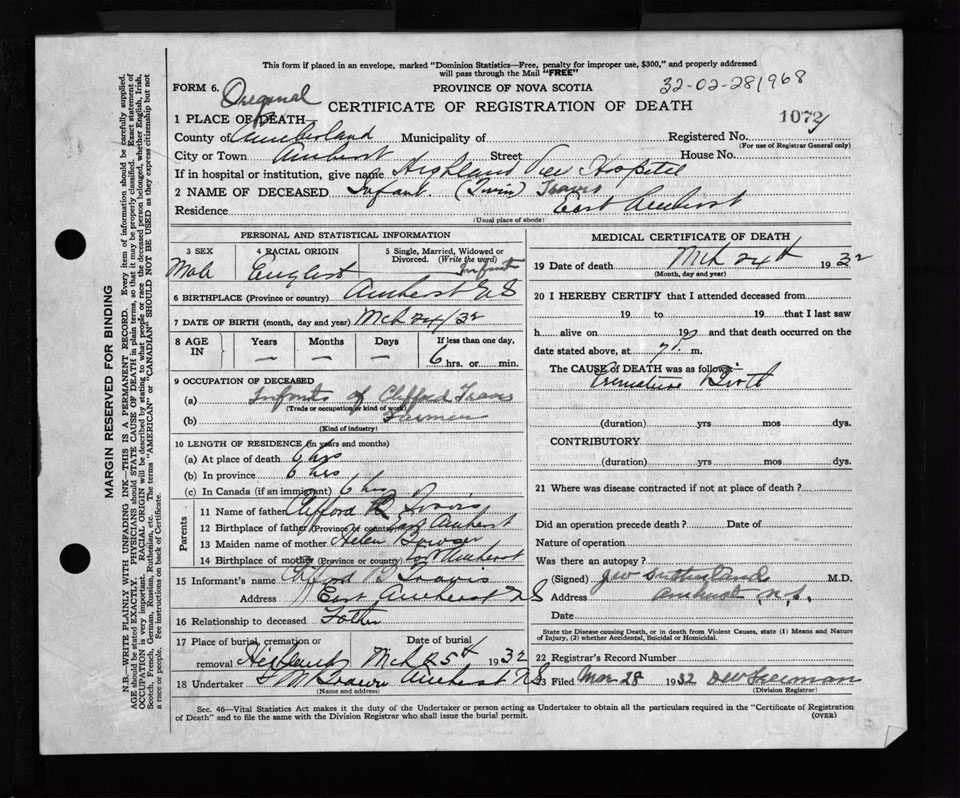 This form if placed in an envelope, marked "Dominion Statistics—Free, penalty for improper use, $300," and properly addressed
will pass through the Mail "FREE"
FORM 6. Original PROVINCE OF NOVA SCOTIA 32-02-281968
CERTIFICATE OF REGISTRATION OF DEATH 1072
1 PLACE OF DEATH
County of Cumberland Municipality of Registered No.
(For use of Registrar General only)
City or Town Amherst Street House No.
If in hospital or institution, give name Highland View Hospital
2 NAME OF DECEASED Infant (Twin) Travis
Residence East Amherst
(Usual place of abode)
PERSONAL AND STATISTICAL INFORMATION
3 SEX 4 RACIAL ORIGIN 5 Single, Married, Widowed or
Divorced. (Write the word)
Male English Infant
6 BIRTHPLACE (Province or country) Amherst N S
7 DATE OF BIRTH (month, day and year) Mch 24/32
8 AGE IN Years Months Days If less than one day,
— — — 6 hrs. or min.
9 OCCUPATION OF DECEASED
(a) Infants of Clifford Travis
(Trade or occupation or kind of work)
(b) Farmer
(Kind of industry)
10 LENGTH OF RESIDENCE (in years and months)
(a) At place of death 6 hrs
(b) In province 6 hrs
(c) In Canada (if an immigrant) 6 hrs
Parents
11 Name of father Clifford R Travis
12 Birthplace of father (Province or country) East Amherst
13 Maiden name of mother Helen Bowser
14 Birthplace of mother (Province or country) East Amherst
15 Informant's name Clifford R Travis
Address East Amherst N S
16 Relationship to deceased Father
17 Place of burial, cremation or Date of burial
removal Highland Mch 25th 1932
18 Undertaker Amherst N S
(Name and address)
MEDICAL CERTIFICATE OF DEATH
19 Date of death Mch 24th 1932
(Month, day and year)
20 I HEREBY CERTIFY that I attended deceased from
19 to 19 that I last saw
h alive on 19 and that death occurred on the
date stated above, at 7 P. m.
The CAUSE OF DEATH was as follows:
Premature Birth
(duration) yrs mos dys.
CONTRIBUTORY
(duration) yrs mos dys.
21 Where was disease contracted if not at place of death?
Did an operation precede death? Date of
Nature of operation
Was there an autopsy?
(Signed) J W Sutherland M.D.
Address Amherst, N.S.
Date
State the Disease causing Death, or in death from Violent Causes, state (1) Means and Nature
of Injury, (2) whether Accidental, Suicidal or Homicidal.
22 Registrar's Record Number
23 Filed Mar 28 1932
(Division Registrar)
Sec. 46—Vital Statistics Act makes it the duty of the Undertaker or person acting as Undertaker to obtain all the particulars required in the "Certificate of Registration
of Death" and to file the same with the Division Registrar who shall issue the burial permit. (OVER)
MARGIN RESERVED FOR BINDING
N.B.—WRITE PLAINLY WITH UNFADING INK—THIS IS A PERMANENT RECORD. Every item of information should be carefully supplied.
AGE should be stated EXACTLY. PHYSICIANS should STATE CAUSE OF DEATH in plain terms, so that it may be properly classified. Exact statement of
OCCUPATION is very important. RACIAL ORIGIN will be described by stating to what people or race the deceased person belonged, whether English, Irish,
Scotch, French, German, Russian, Ruthenian, etc. The terms "AMERICAN" or "CANADIAN" SHOULD NOT BE USED as they express citizenship but not
a race or people. See instructions on back of Certificate.